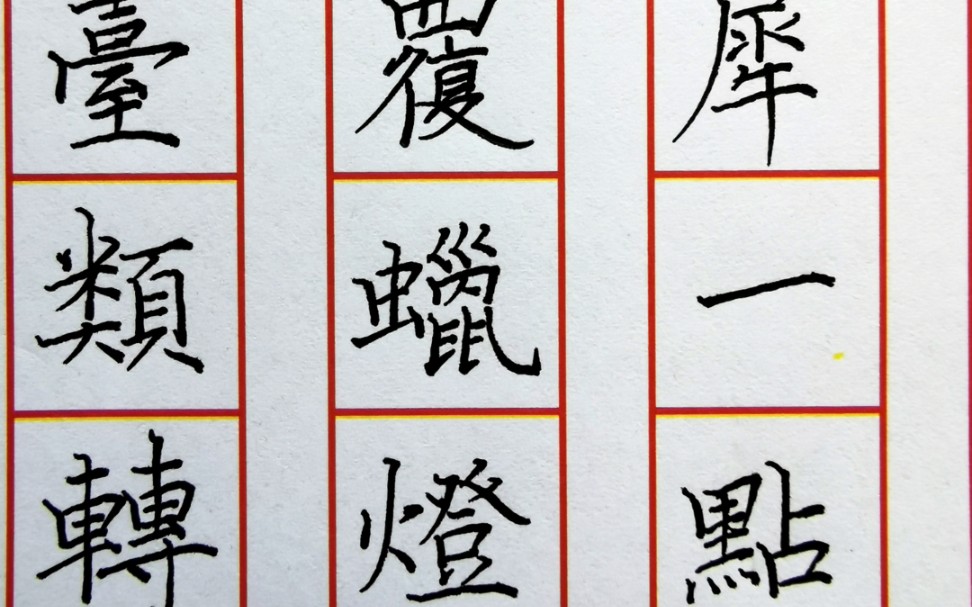 犀一點
覆蠟燈
臺類轉